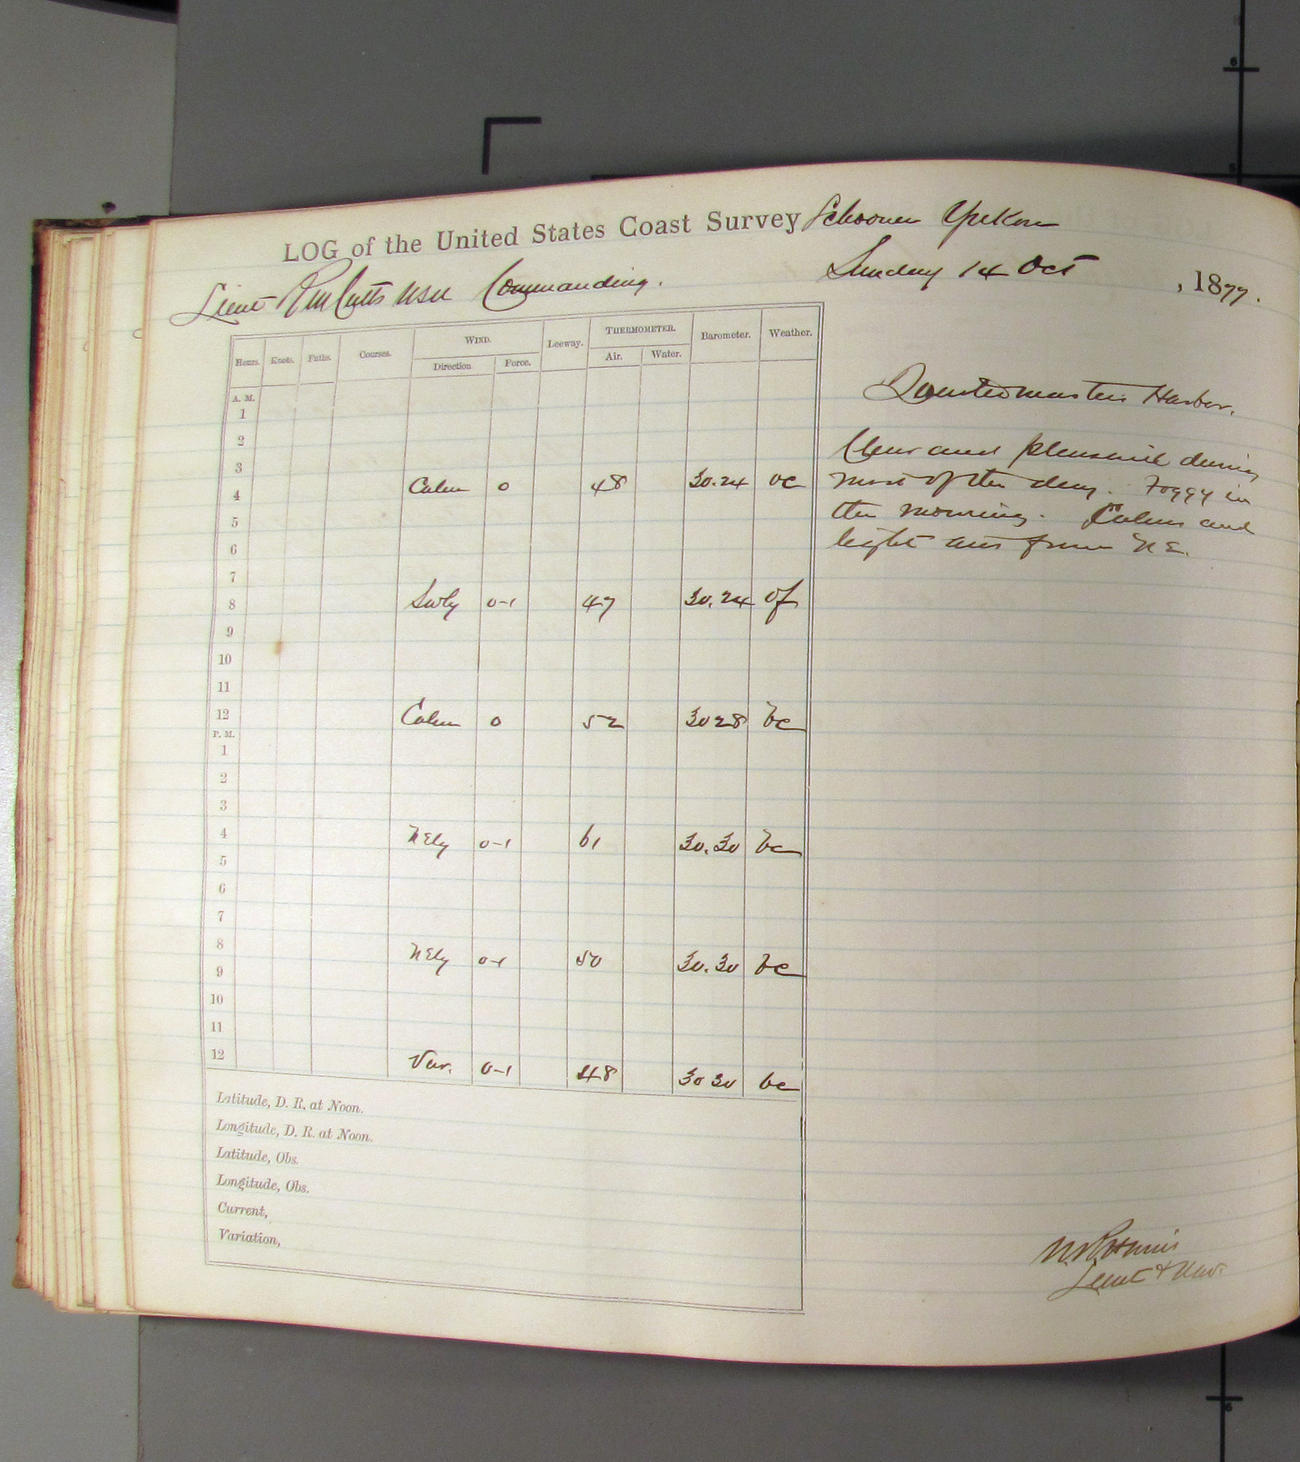 LOG of the United States Coast Survey Schooner Yukon
Lieut R M Cutts USN Commanding.
Sunday 14 Oct , 1877.
Hours. Knots. Faths. Courses. WIND. Leeway. THERMOMETER. Barometer. Weather.
Direction Force. Air. Water.
A. M.
1
2
3
4 Calm 0 48 30.24 oc
5
6
7
8 Swly 0-1 47 30.24 of
9
10
11
12 Calm 0 52 30 28 bc
P. M.
1
2
3
4 NEly 0-1 61 30.30 bc
5
6
7
8 NEly 0-1 50 30.30 bc
9
10
11
12 Var. 0-1 48 30 30 bc
Latitude, D. R. at Noon.
Longitude, D. R. at Noon.
Latitude, Obs.
Longitude, Obs.
Current,
Variation,
Quartermasters Harbor.
Clear and pleasant during
most of the day. Foggy in
the morning. Calms and
light airs from N E.
Lieut & Nav.
6
5
6